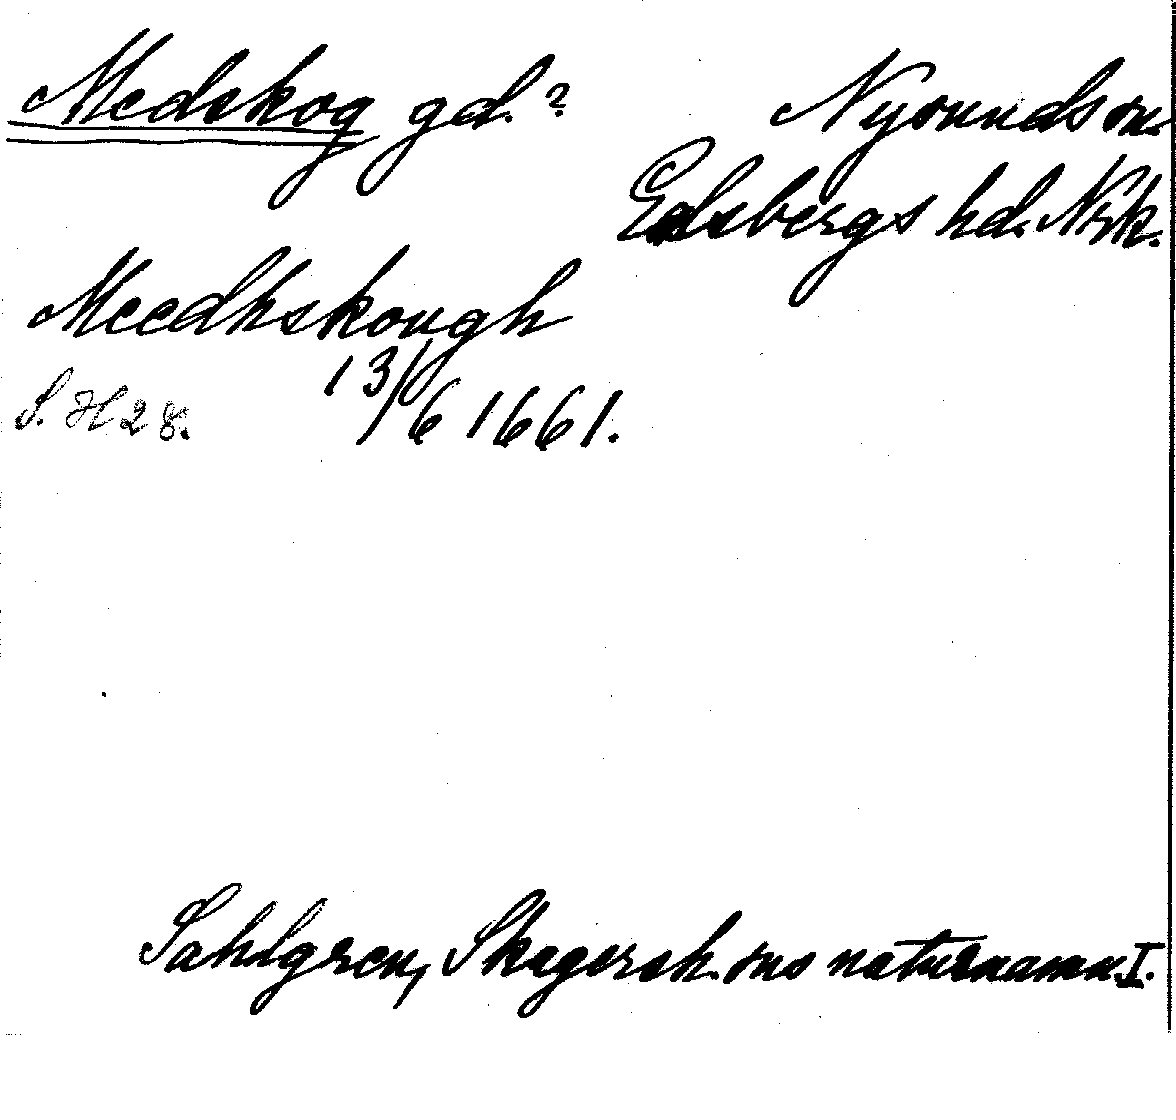 Medskog gd.? Nysunds sn.
Edsbergs hd. Nrk.
Meedhskough
13/6 1661.
S. 28.
Sahlgren, Skagersh. sns naturnamn. I.